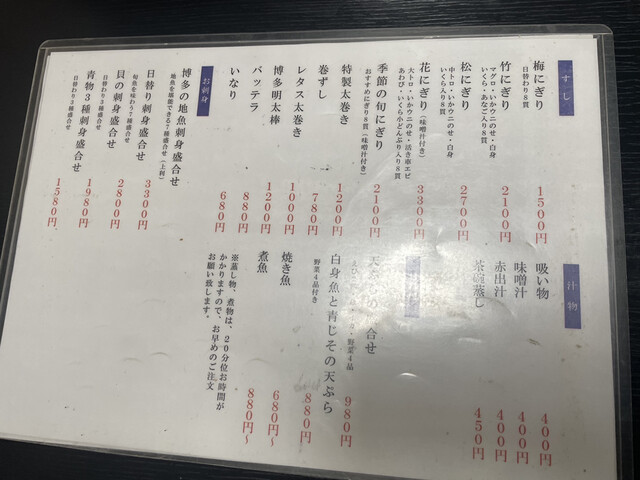 すし
梅にぎり 1500円
日替わり8貫
竹にぎり 2100円
マグロ・いかウニのせ・白身
いくら・あなご入り8貫
松にぎり 2700円
中トロ・いかウニのせ・白身
いくら入り8貫
花にぎり(味噌汁付き) 3300円
大トロ・いかウニのせ・活き車エビ
あわび・いくら小どんぶり入り8貫
季節の旬にぎり 2100円
おすすめにぎり8貫(味噌汁付き)
特製太巻き 1200円
巻ずし 780円
レタス太巻き 1000円
博多明太棒 1200円
バッテラ 880円
いなり 680円
お刺身
博多の地魚刺身盛合せ
地魚を堪能できる7種盛合せ(上判)
日替り刺身盛合せ 3300円
旬魚を味わう7種盛合せ
貝の刺身盛合せ 2800円
日替わり3種盛合せ
青物3種刺身盛合せ 1980円
日替わり3種盛合せ
1580円
汁物
吸い物 400円
味噌汁 400円
赤出汁 400円
茶碗蒸し 450円
合せ 980円
野菜4品
白身魚と青じその天ぷら 880円
野菜4品付き
焼き魚 680円~
煮魚 880円~
※蒸し物、煮物は、20分位お時間が
かかりますので、お早めのご注文
お願い致します。